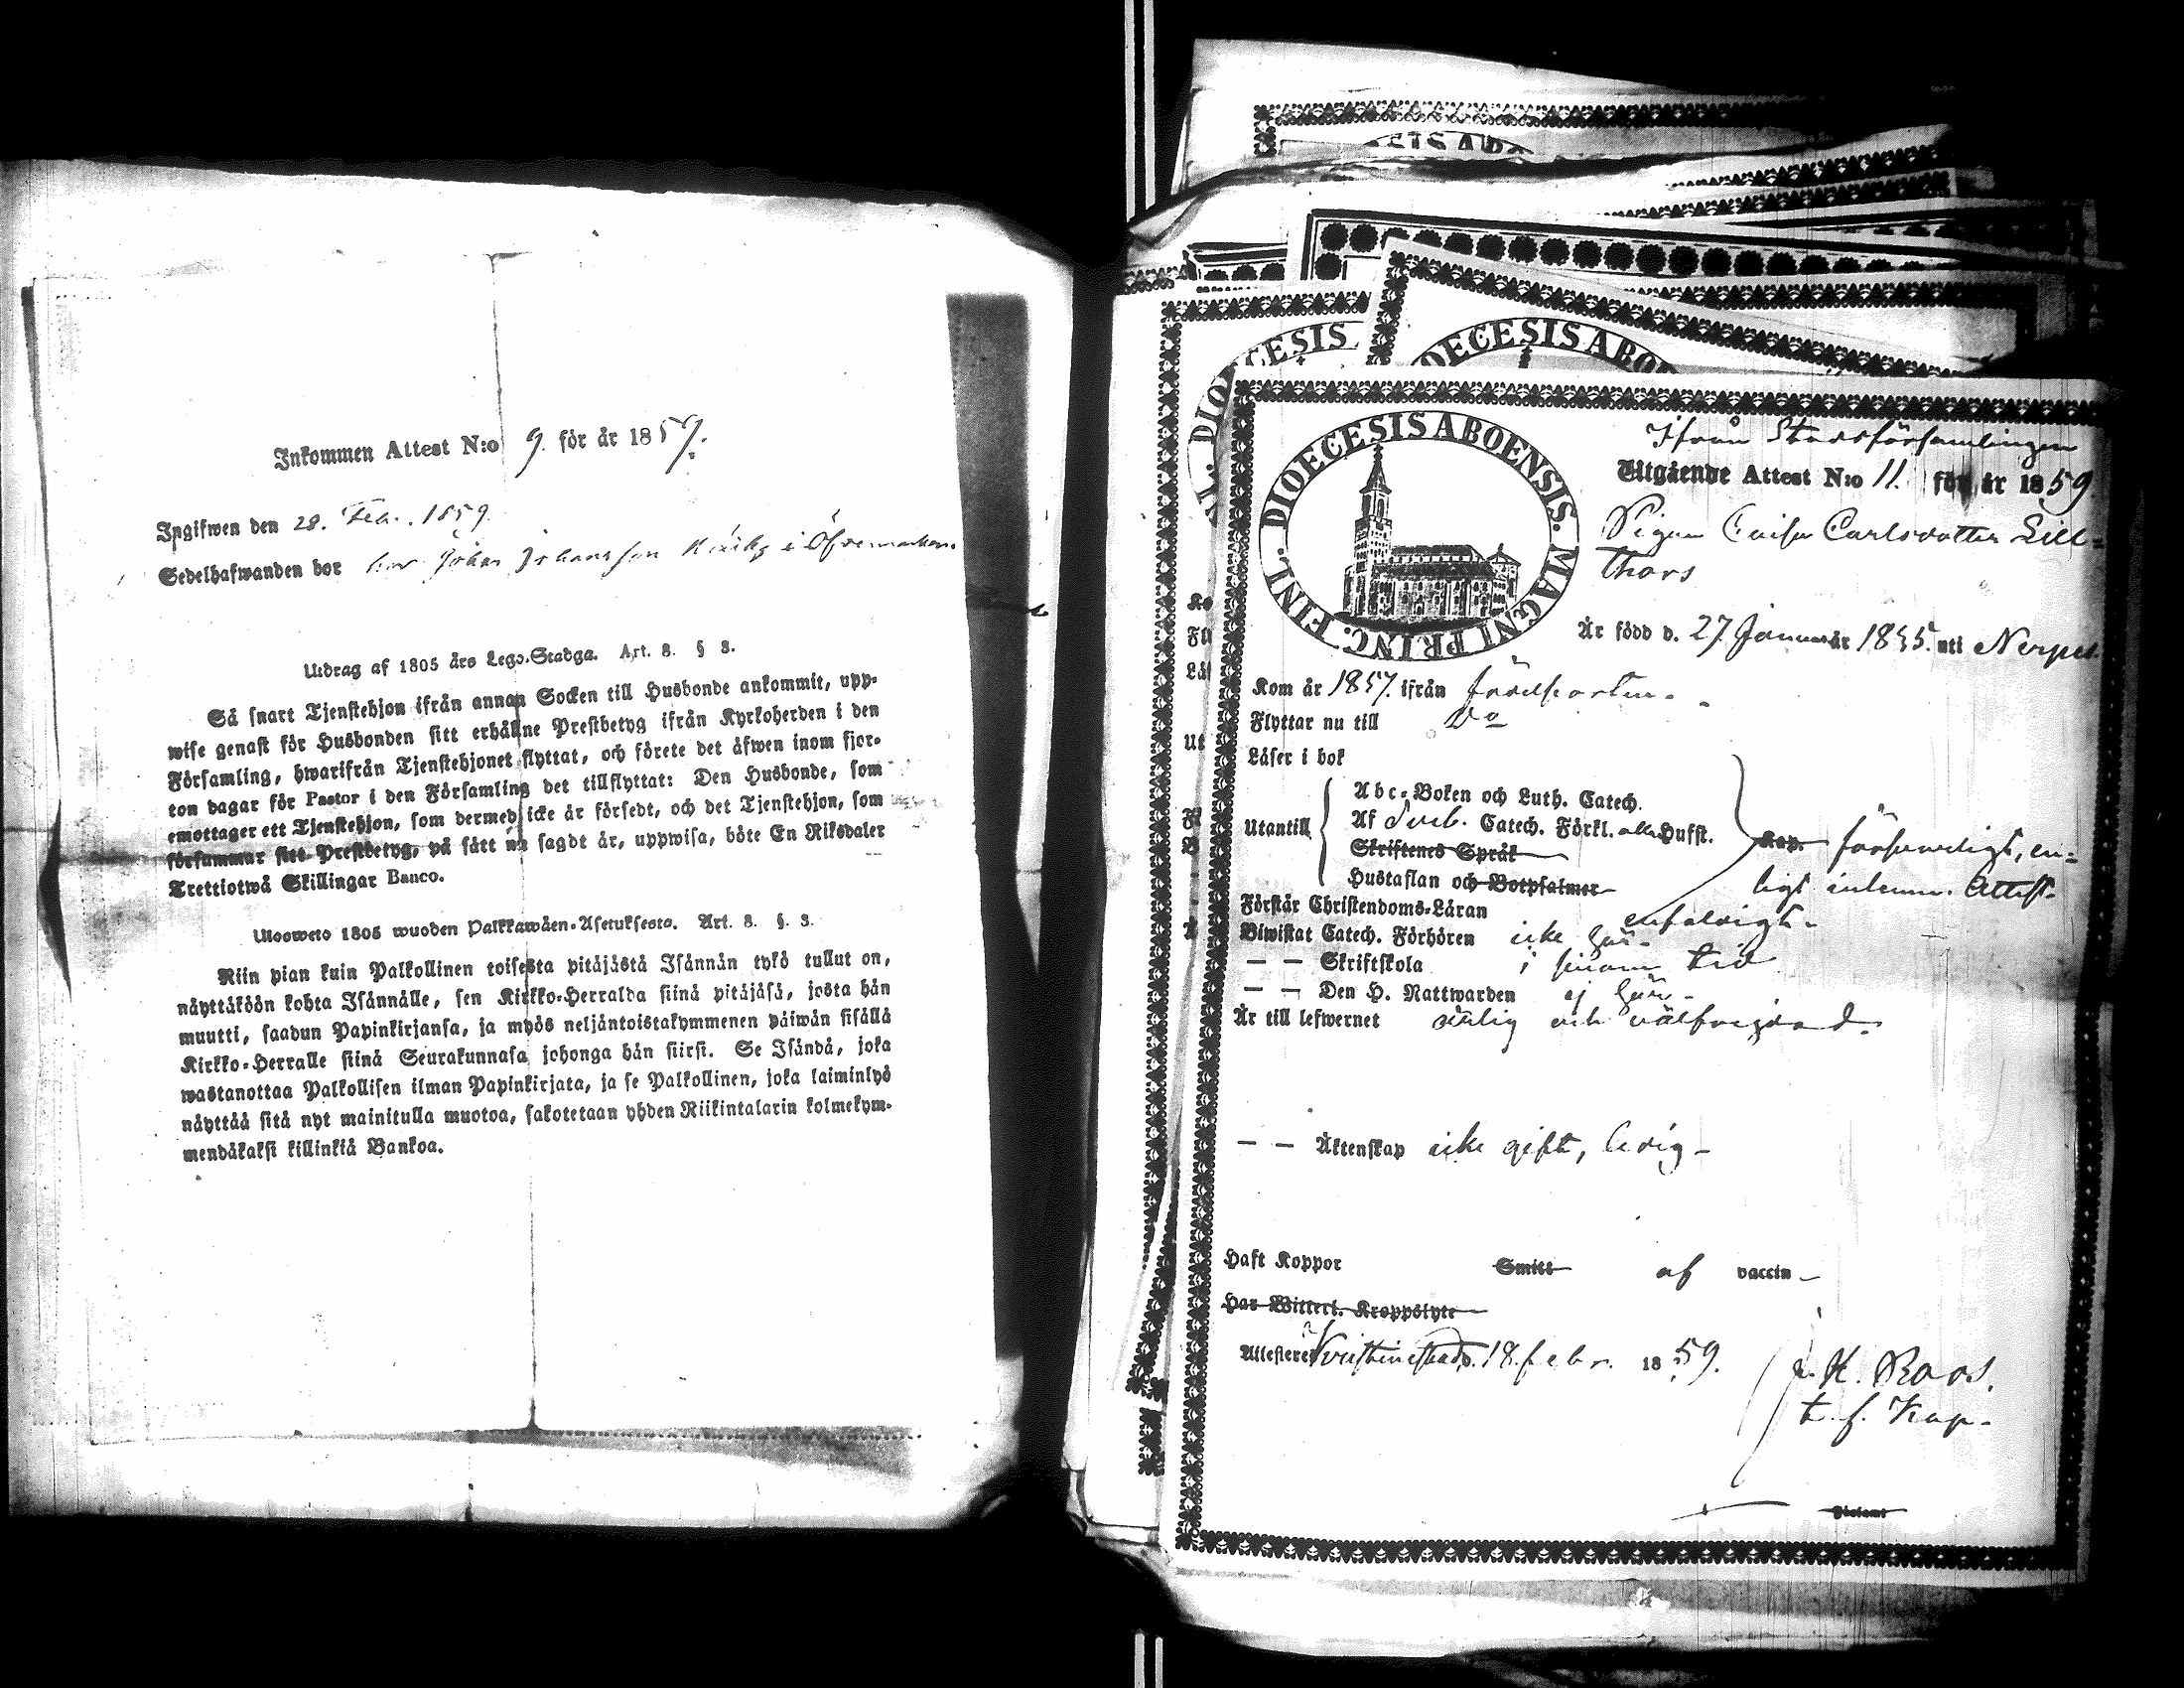 Inkommen Attest N:o 9. för år 1859.
Ingifwen den 28. Febr. 1859.
Sedelhafwanden bor hos Johan Johansson i Öfvermarken.
Utdrag af 1805 års Lego-Stadga. Art. 8. § 3.
Så snart Tjenstehjon ifrån annan Socken till Husbonde ankommit, upp-
wise genast för Husbonden sitt erhållne Prestbetyg ifrån Kyrkoherden i den
Församling, hwarifrån Tjenstehjonet flyttat, och förete det äfwen inom fjor-
ton dagar för Pastor i den Församling det tillflyttat: Den Husbonde, som
emottager ett Tjenstehjon, som dermed icke är försedt, och det Tjenstehjon, som
försummar sitt Prestbetyg, på sätt nu sagdt är, uppwisa, böte En Riksdaler
Trettiotwå Skillingar Banco.
Ulosweto 1805 wuoden Palkkawäen-Asetuksesta. Art. 8. §. 3.
Niin pian kuin Palkollinen toisesta pitäjästä Isännän tykö tullut on,
näyttäköön kohta Isännälle, sen Kirkko-Herralda siinä pitäjäsä, josta hän
muutti, saadun Papinkirjansa, ja myös neljäntoistakymmenen päiwän sisällä
Kirkko-Herralle siinä Seurakunnasa johonga hän siirsi. Se Isändä, joka
wastanottaa Palkollisen ilman Papinkirjata, ja se Palkollinen, joka laiminlyö
näyttää sitä nyt mainitulla muotoa, sakotetaan yhden Riikintalarin kolmekym-
mendäkaksi killinkiä Bankoa.
DIOECESIS ABO
DIOECESIS ABOENSIS. MAGNI PRINC. FINL.
Ifrån Stadsförsamlingen
Utgående Attest N:o 11. för år 1859
Pigan Caisa Carlsdotter Lill-
thors
Är född d. 27 Januar 1835. uti Nerpes
Kom år 1857. ifrån födelseorten.
Flyttar nu till Do
Läser i bok
Utantill
Abc-Boken och Luth. Catech.
Af Sveb. Catech. Förkl. Hufst.
Skriftenes Språk
Hustaflan och Botpsalmer
Kap. försvarligt, en-
ligt inlemn. Attest.
Förstår Christendoms-Läran enfaldigt.
Biwistat Catech. Förhören icke här.
— — Skriftskola i sinom tid
— — Den H. Nattwarden ej här.
Är till lefwernet ärlig och välfrejdad.
— — Äktenskap icke gift, ledig
Haft Koppor Smitt af vaccin
Har Witterl. Kroppslyte
Attesterar Kristinestad d. 18. febr. 1859.
K. Roos.
t. f. Kap.